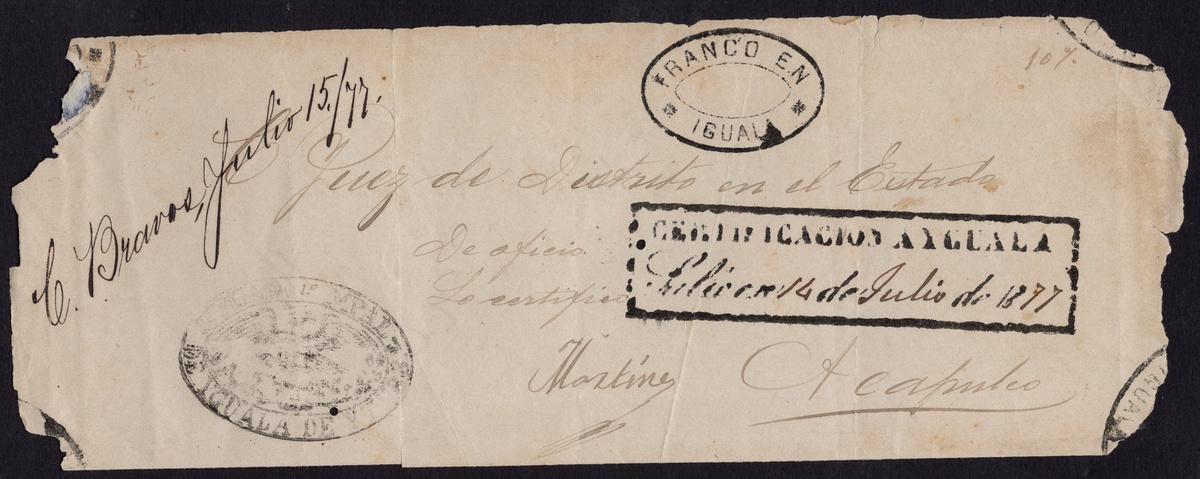 FRANCO EN
IGUALA
10%.
C. Bravos, Julio 15/77.
Juez de Distrito en el Estado
De oficio
Lo certifico
CERTIFICACION AYGUALA
Salió en 14 de Julio de 1877
Martinez
Acapulco
IGUALA DE
IGUAL